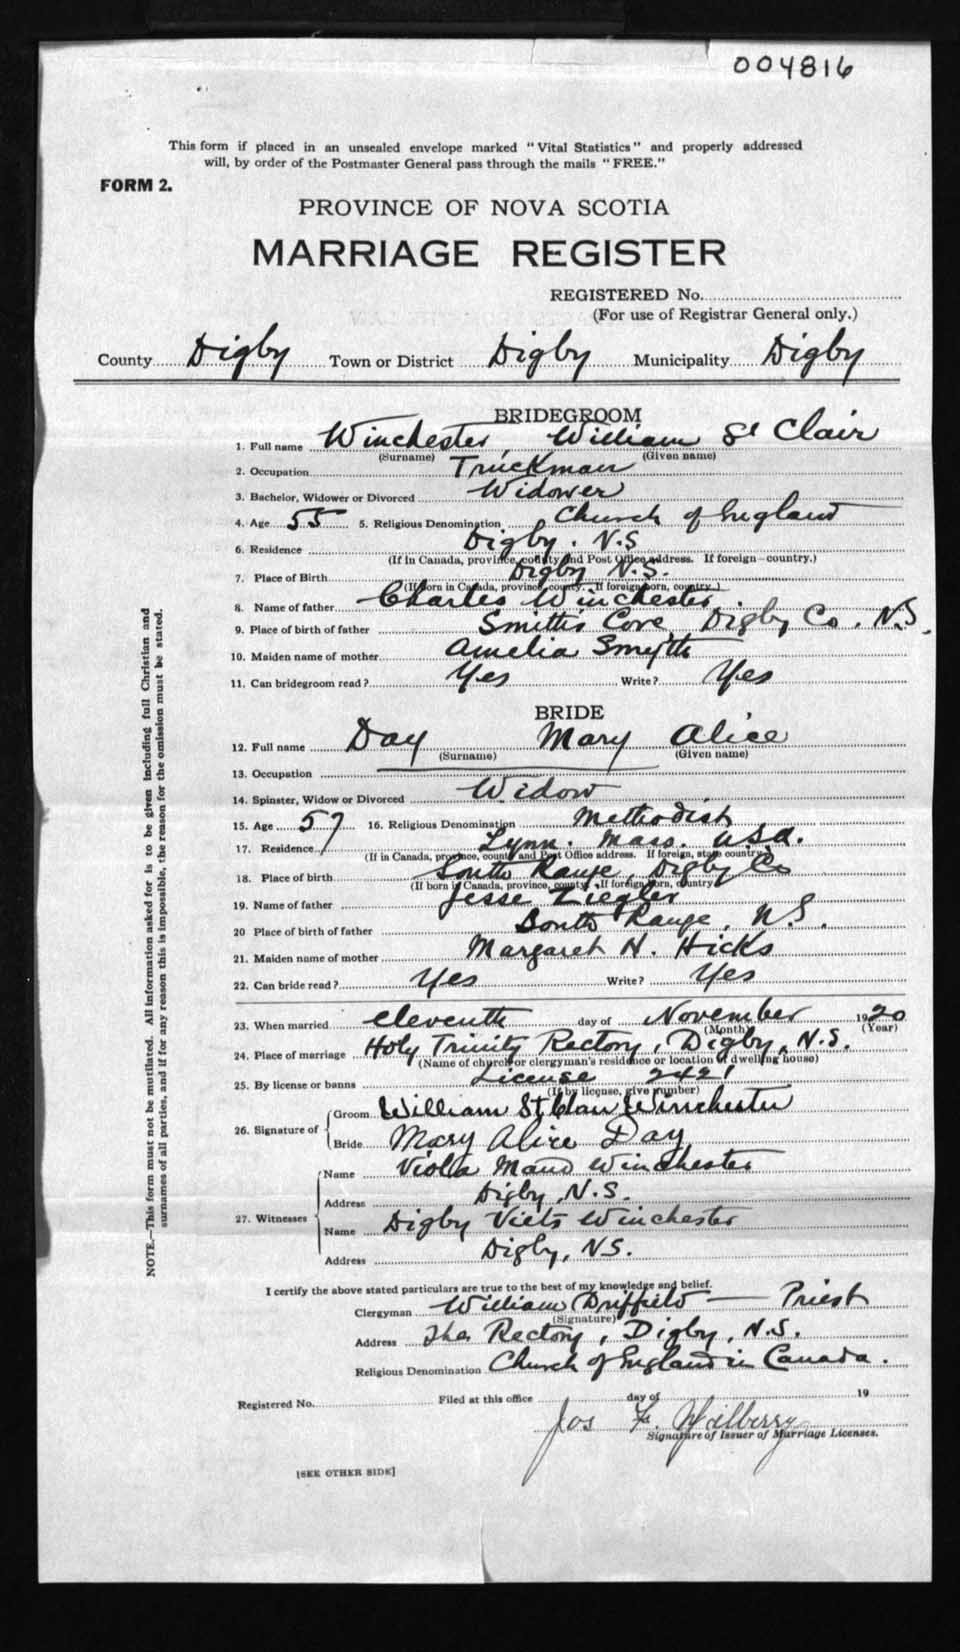 004816
This form if placed in an unsealed envelope marked "Vital Statistics" and properly addressed
will, by order of the Postmaster General pass through the mails "FREE."
FORM 2.
PROVINCE OF NOVA SCOTIA
MARRIAGE REGISTER
REGISTERED No.
(For use of Registrar General only.)
County Digby Town or District Digby Municipality Digby
BRIDEGROOM
1. Full name Winchester, William St Clair
(Surname) (Given name)
2. Occupation Truckman
3. Bachelor, Widower or Divorced Widower
4. Age 55 5. Religious Denomination Church of England
6. Residence Digby. N.S
(If in Canada, province, county and Post Office address. If foreign—country.)
7. Place of Birth Digby N.S.
(If born in Canada, province, county. If foreign born, country.)
8. Name of father Charles Winchester.
9. Place of birth of father Smiths Cove, Digby Co. N.S.
10. Maiden name of mother Amelia Smyth
11. Can bridegroom read? Yes Write? Yes
BRIDE
12. Full name Day Mary Alice
(Surname) (Given name)
13. Occupation
14. Spinster, Widow or Divorced Widow
15. Age 57 16. Religious Denomination Methodist
17. Residence Lynn. Mass. U.S.A.
(If in Canada, province, county and Post Office address. If foreign, state country.)
18. Place of birth South Range, Digby Co
(If born in Canada, province, county. If foreign born, country)
19. Name of father Jesse Ziegler
20 Place of birth of father South Range, N.S.
21. Maiden name of mother Margaret H. Hicks
22. Can bride read? Yes Write? Yes
23. When married eleventh day of November 1920
(Month) (Year)
24. Place of marriage Holy Trinity Rectory, Digby, N.S.
(Name of church or clergyman's residence or location of dwelling house)
25. By license or banns License 2421
(If by license, give number)
26. Signature of Groom William St Clair Winchester
Bride Mary Alice Day
27. Witnesses Name Viola Maud Winchester
Address Digby, N.S.
Name Digby Viets Winchester
Address Digby, N.S.
I certify the above stated particulars are true to the best of my knowledge and belief.
Clergyman William Driffield — Priest
(Signature)
Address The Rectory, Digby, N.S.
Religious Denomination Church of England in Canada.
Registered No. Filed at this office day of 19
Jos F.
Signature of Issuer of Marriage Licenses.
[SEE OTHER SIDE]
NOTE.—This form must not be mutilated. All information asked for is to be given including full Christian and
surnames of all parties, and if for any reason this is impossible, the reason for the omission must be stated.